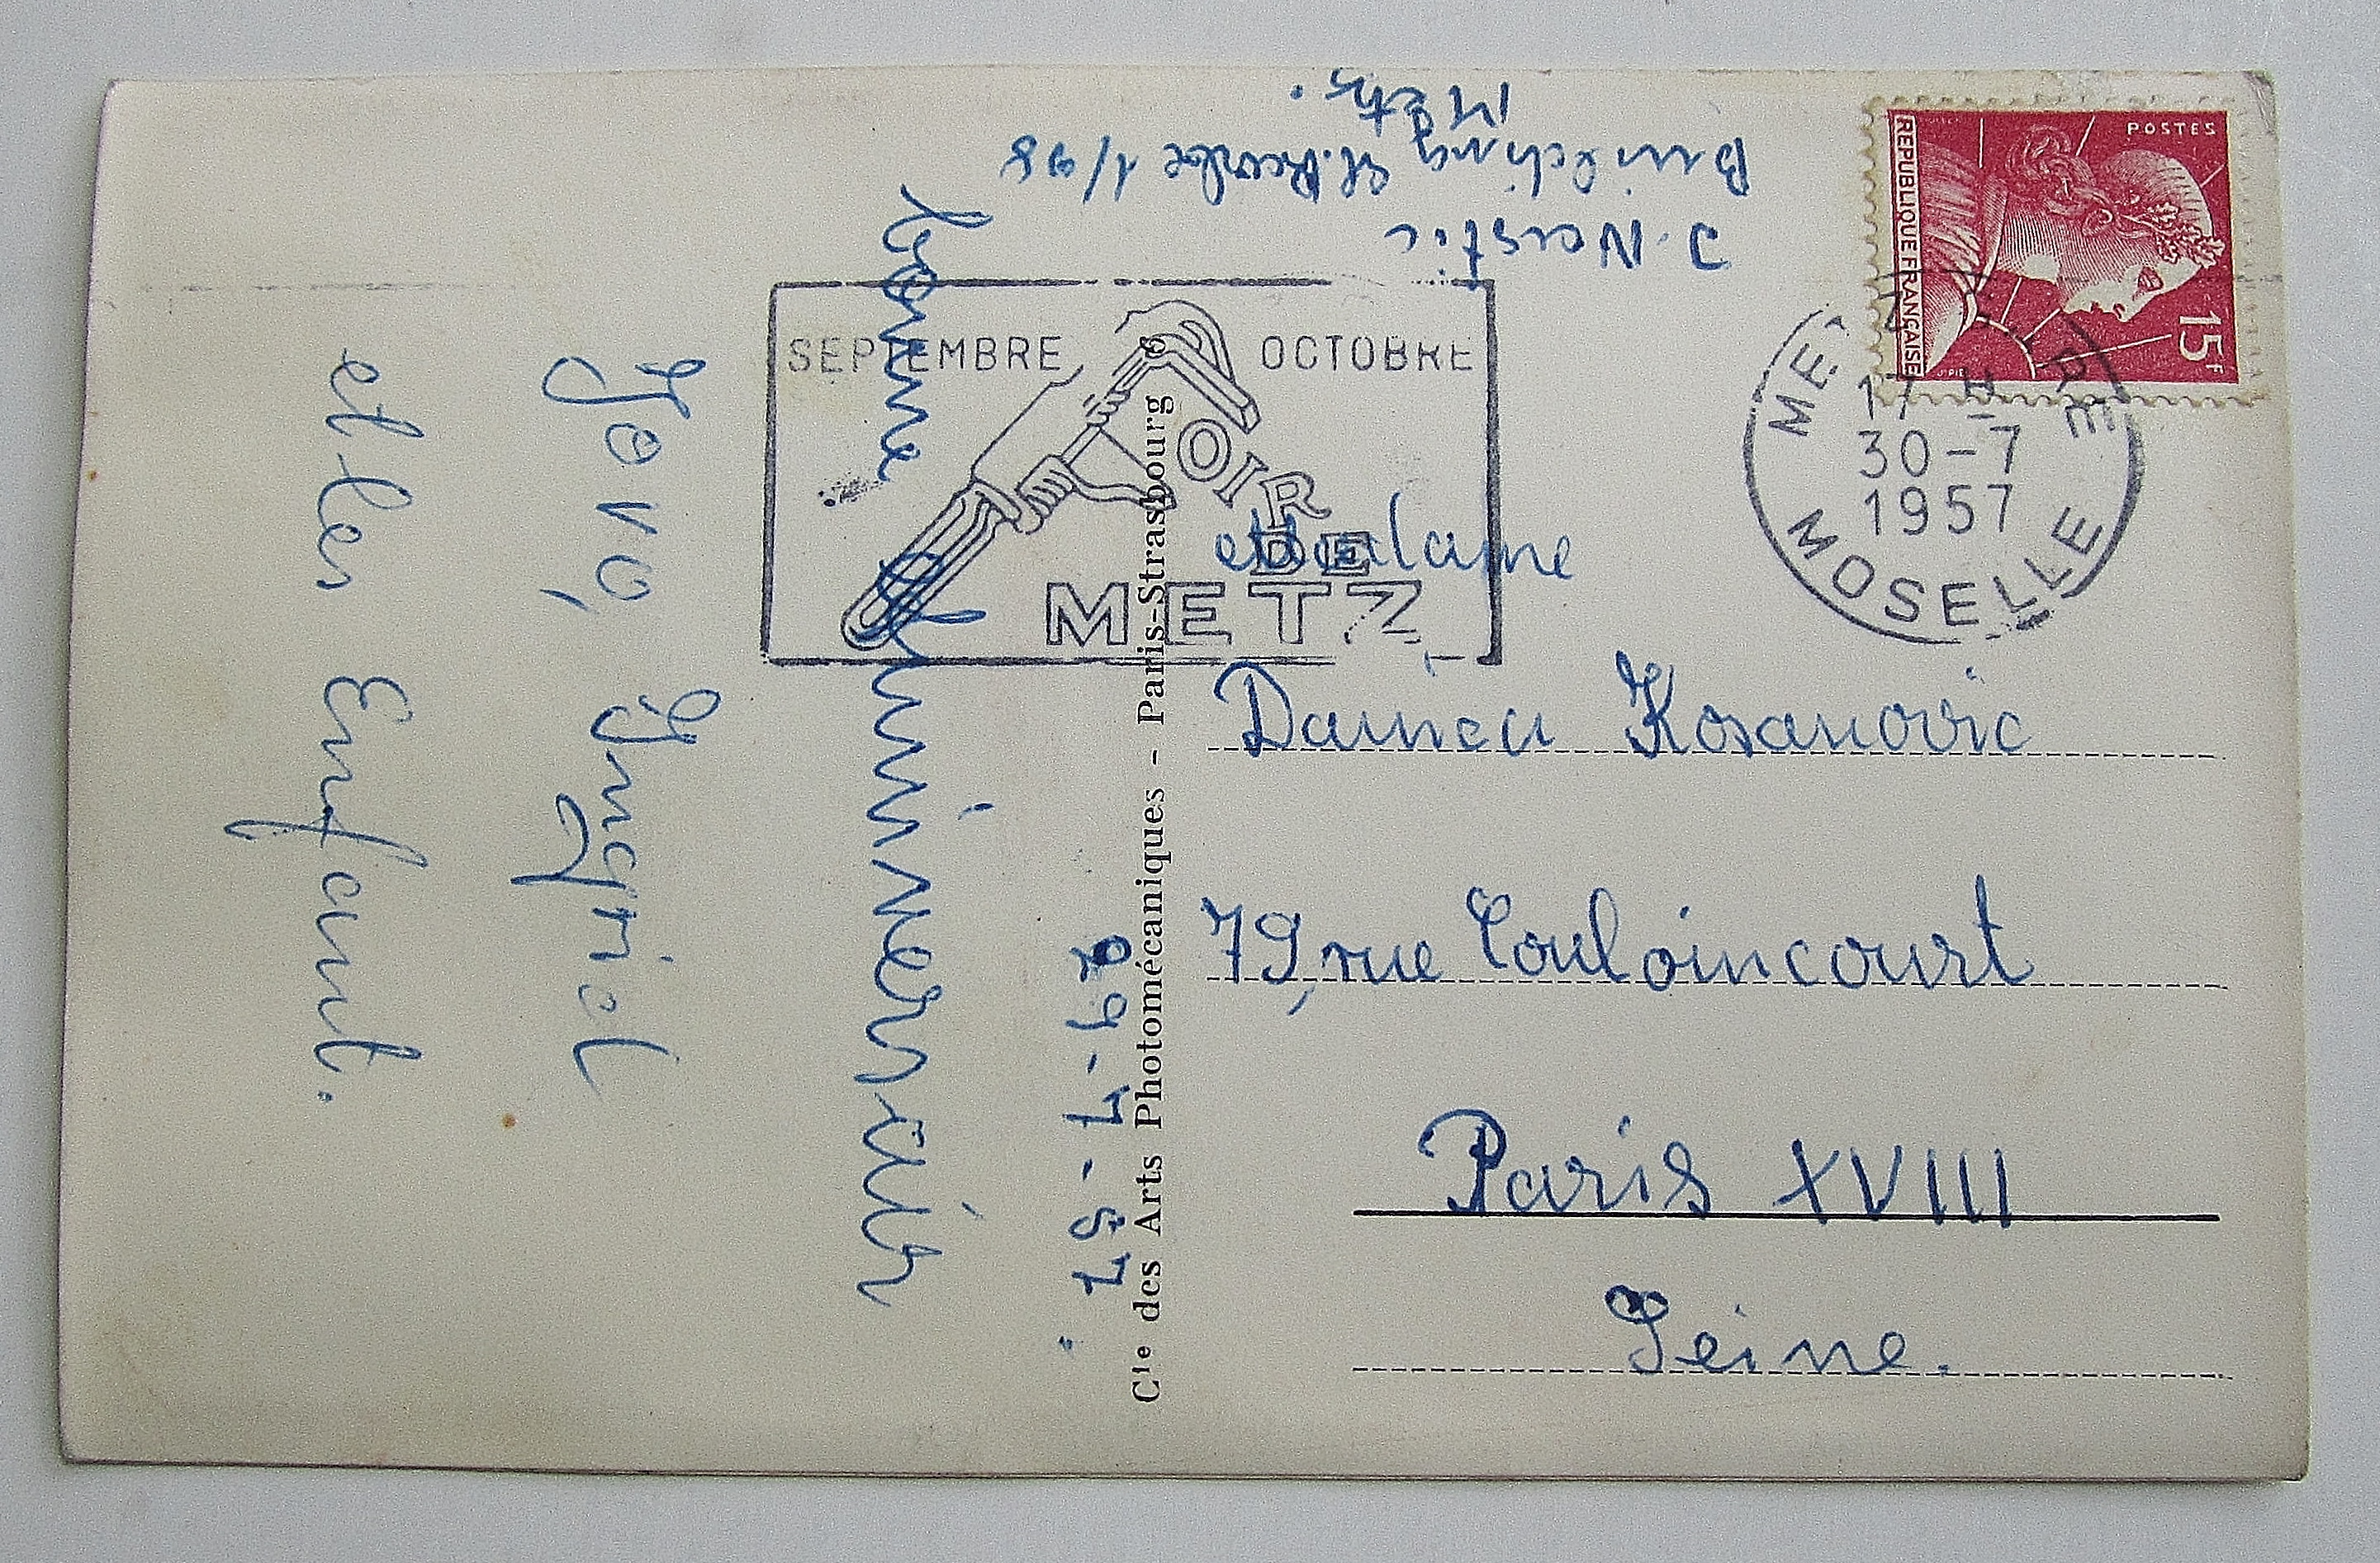 J. Nastic
Building St. 1/98
Metz.
POSTES
REPUBLIQUE FRANÇAISE
15F
SEPTEMBRE OCTOBRE
FOIRE
DE
METZ
17 H
30-7
1957
MOSELLE
29-7-57.
bonne Anniversair
Jovo, Ingrid
et les Enfant.
Cie des Arts Photomécaniques - Paris-Strasbourg
et Madame
Kosanovic
79, rue Couloincourt
Paris XVIII
Seine.